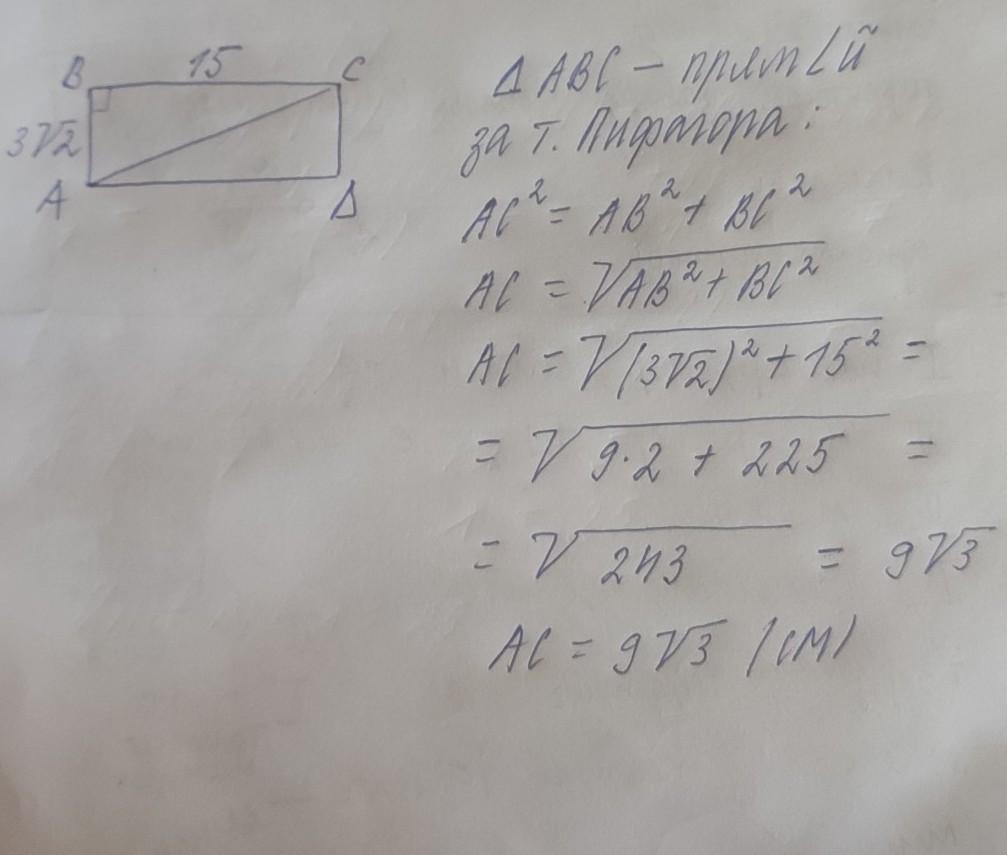 B 15 C
3√2
A Δ
Δ ABC - прям∠й
за т. Пифагора:
AC² = AB² + BC²
AC = √AB² + BC²
AC = √(3√2)² + 15² =
= √9·2 + 225 =
= √243 = 9√3
AC = 9√3 (см)